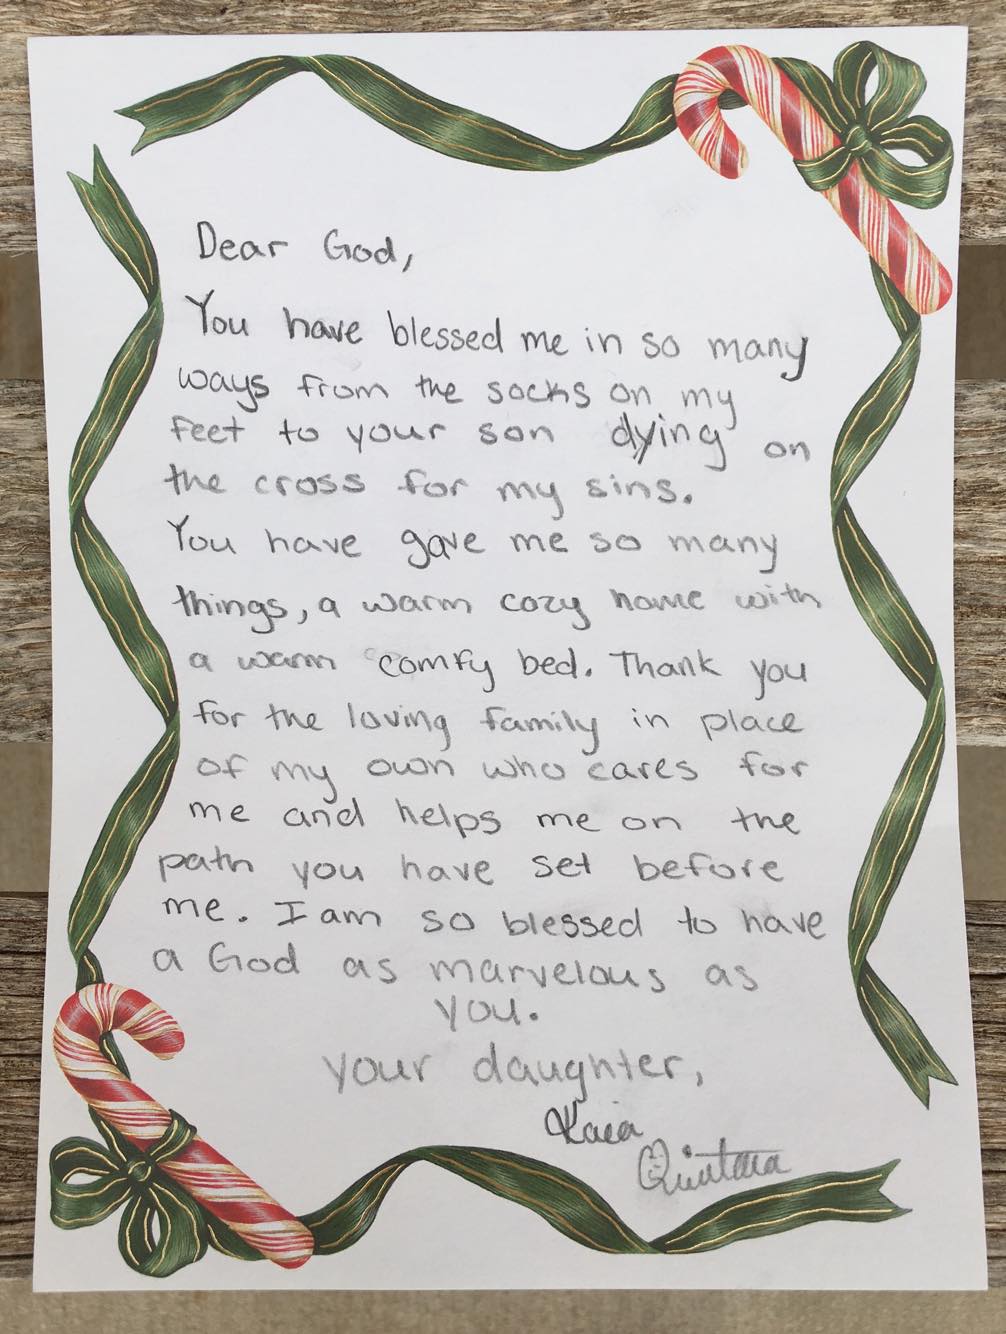 Dear God,
You have blessed me in so many
ways from the socks on my
feet to your son dying on
the cross for my sins.
You have gave me so many
things, a warm cozy home with
a warm comfy bed. Thank you
for the loving family in place
of my own who cares for
me and helps me on the
path you have set before
me. I am so blessed to have
a God as marvelous as
you.
your daughter,
Kaia